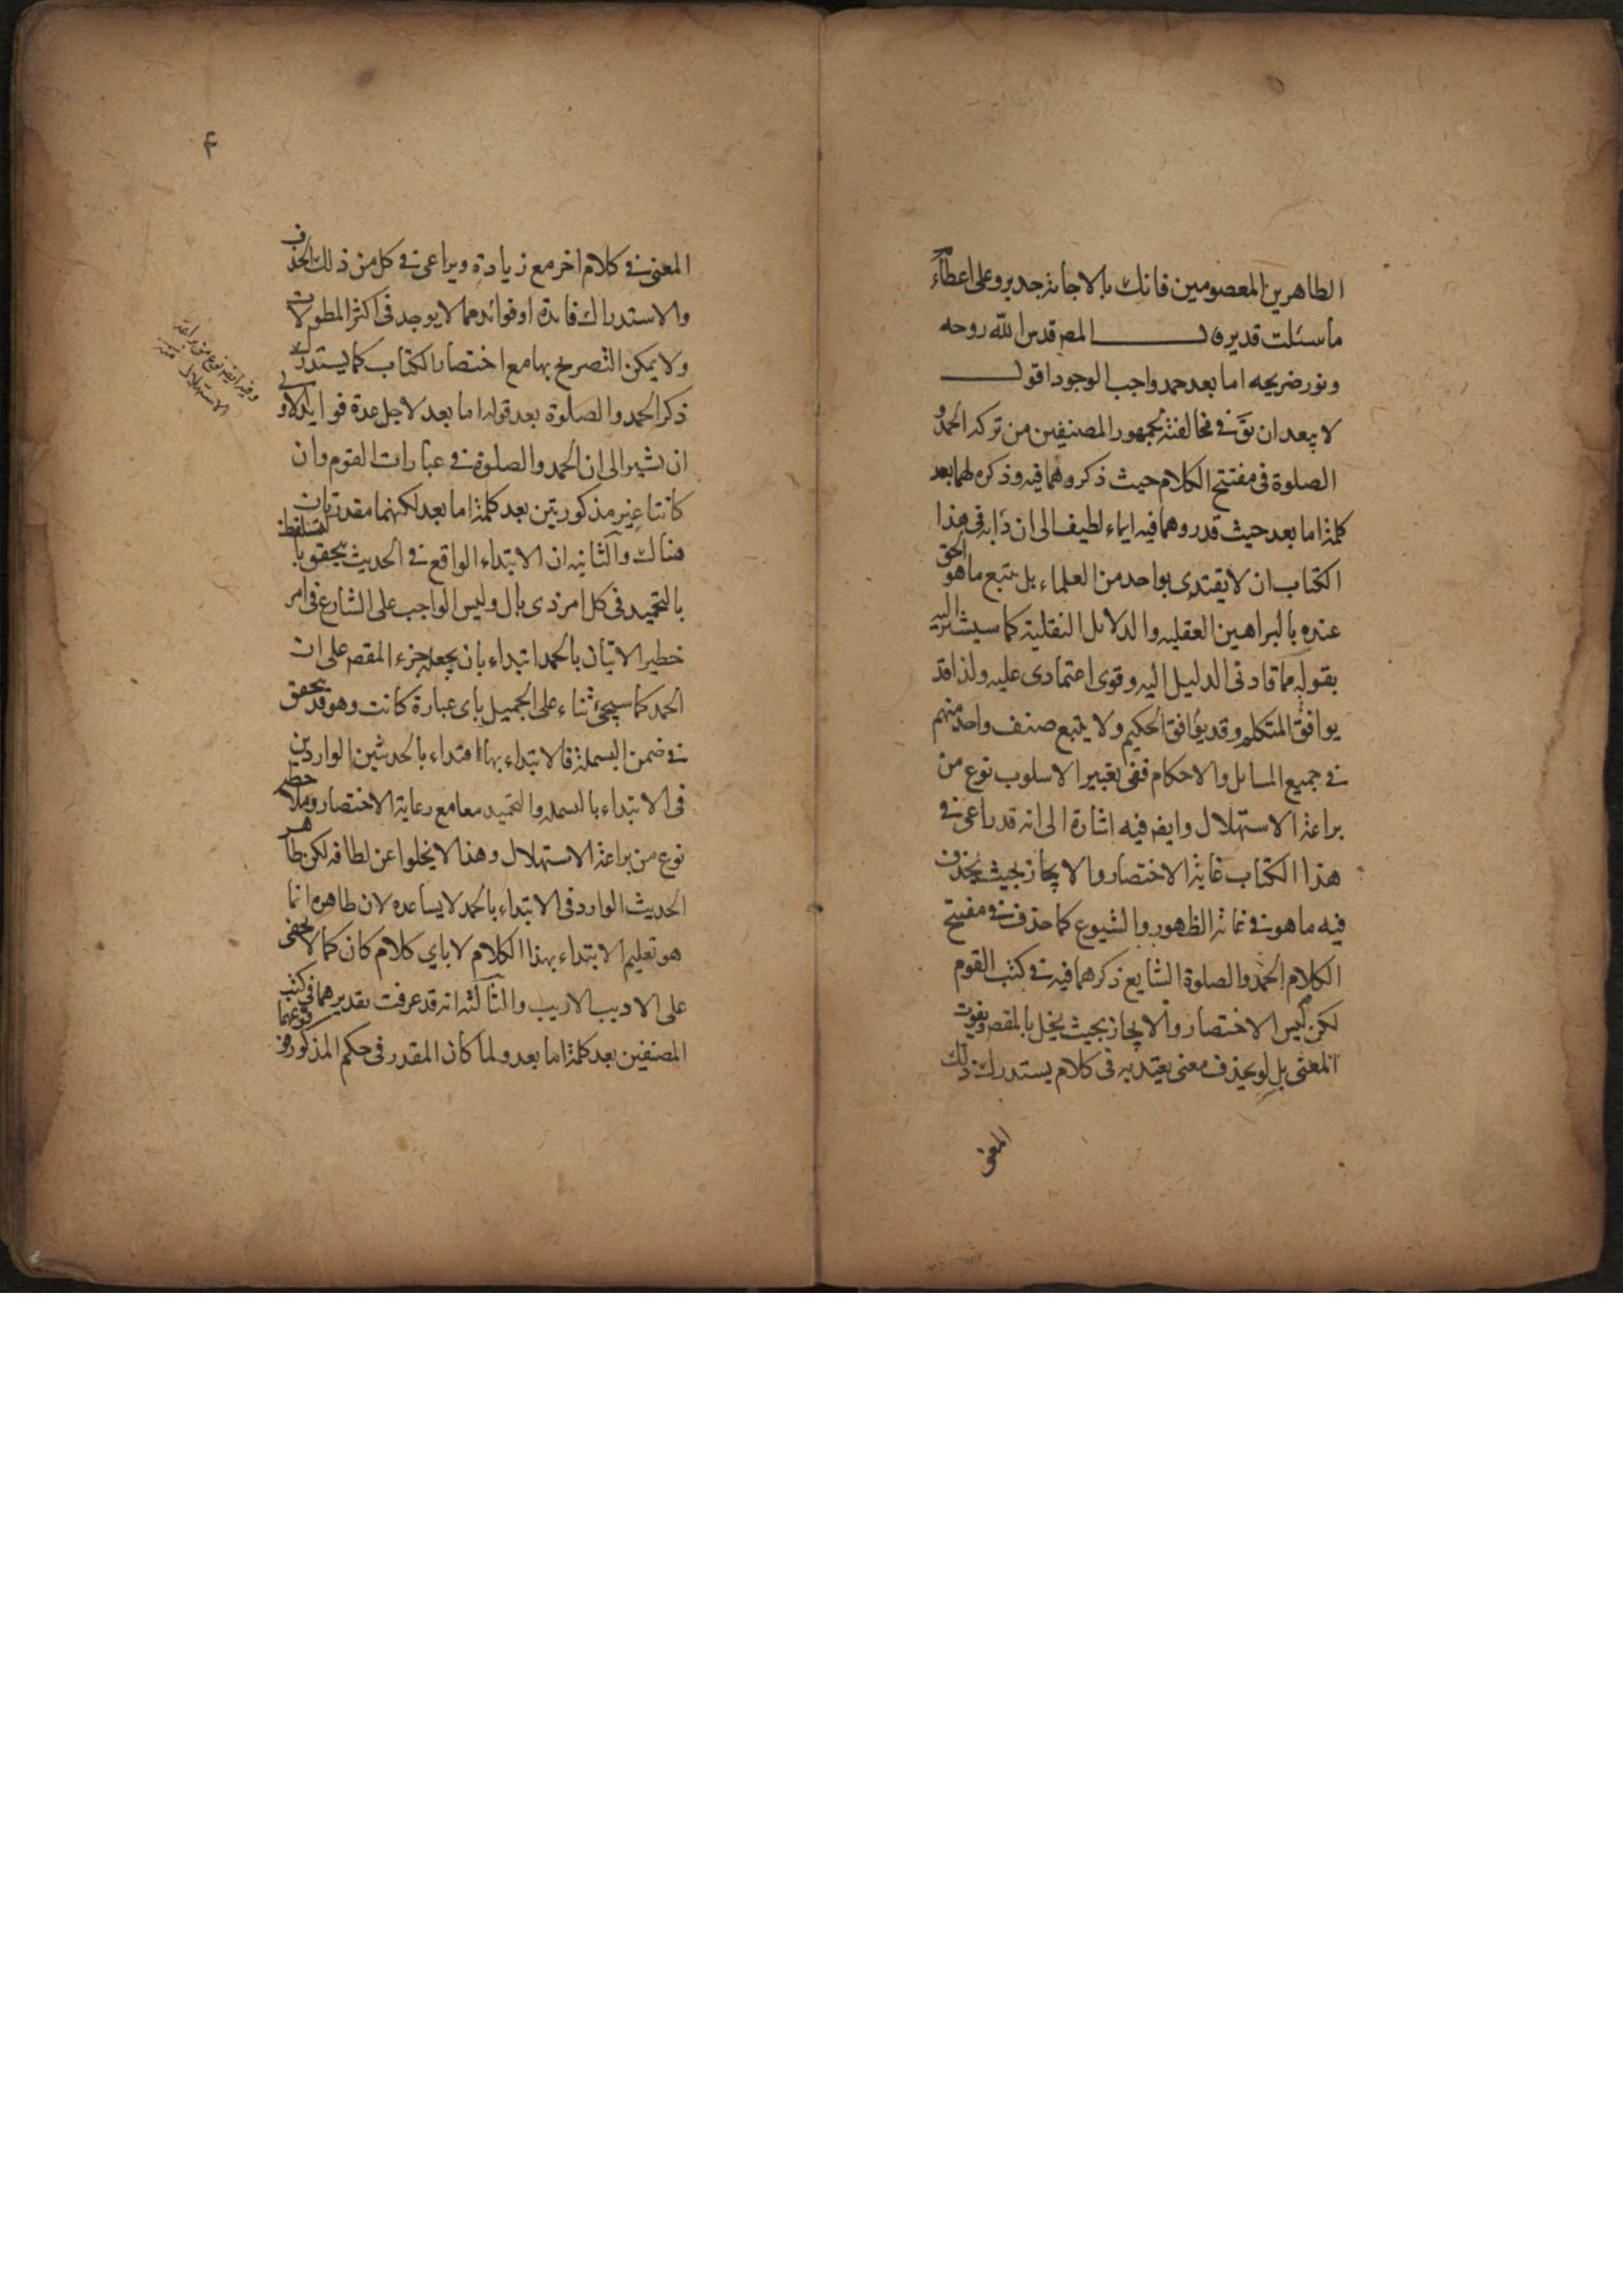 الطاهرين المعصومين فانك بالاجابة جدير وعلى اعطاء
ما سئلت قدير قال المصـ قدس الله روحه
ونور ضريحه اما بعد حمد واجب الوجود اقول
لا يبعد ان يق في مخالفته لجمهور المصنفين من تركه الحمد و
الصلوة في مفتتح الكلام حيث ذكروهما فيه وذكره لهما بعد
كلمة اما بعد حيث قدروهما فيه ايماء لطيف الى ان دابه في هذا
الكتاب ان لا يقتدى بواحد من العلماء بل يتبع ما هو الحق
عنده بالبراهين العقلية والدلائل النقلية كما سيشير اليه
بقوله مما قادنى الدليل اليه وقوى اعتمادى عليه ولذا قد
يوافق المتكلم وقد يوافق الحكيم ولا يتبع صنف واحد منهم
في جميع المسائل والاحكام ففى تغيير الاسلوب نوع من
براعة الاستهلال وايضـ فيه اشارة الى انه قد راعى في
هذا الكتاب غاية الاختصار والايجاز بحيث يحذف
فيه ما هو في غاية الظهور والشيوع كما حذف في مفتتح
الكلام الحمد والصلوة الشايع ذكرهما فيه في كتب القوم
لكن ليس الاختصار والايجاز بحيث يخل بالمقصـ ويفوت
المعنى بل لو يحذف معنى يعتد به في كلام يستدرك ذلك
المعنى
۴
المعنى في كلام اخر مع زيادة ويراعى في كل من ذلك الحذف
والاستدراك فائدة او فوائد مما لا يوجد في اكثر المطولات
ولا يمكن التصريح بها مع اختصار الكتاب كما يستدرك
ذكر الحمد والصلوة بعد قوله اما بعد لاجل عدة فوايد الاولى
ان يشير الى ان الحمد والصلوة في عبارات القوم وان
كانتا غير مذكورتين بعد كلمة اما بعد لكنهما مقدرتان
هناك والثانية ان الابتداء الواقع في الحديث يتحقق با لتلفظ
بالتحميد في كل امر ذى بال وليس الواجب على الشارع في امر
خطير الاتيان بالحمد ابتداء بان يجعله جزء المقصـ على ان
الحمد كما سيجئ ثناء على الجميل باى عبارة كانت وهو قد يتحقق
في ضمن البسملة فالابتداء بها اقتداء بالحديثين الواردين
في الابتداء بالبسملة والتحميد معا مع رعاية الاختصار وملاحظة
نوع من براعة الاستهلال وهذا لا يخلوا عن لطافه لكن ظاهر
الحديث الوارد في الابتداء بالحمد لا يساعده لان ظاهره انما
هو تعليم الابتداء بهذا الكلام لا باي كلام كان كما لا يخفى
على الاديب الاريب والثالثة انه قد عرفت تقديرهما في كتب
المصنفين بعد كلمة اما بعد ولما كان المقدر في حكم المذكور
وفيه ايضـ نوع من براعة
الاستهلال منه